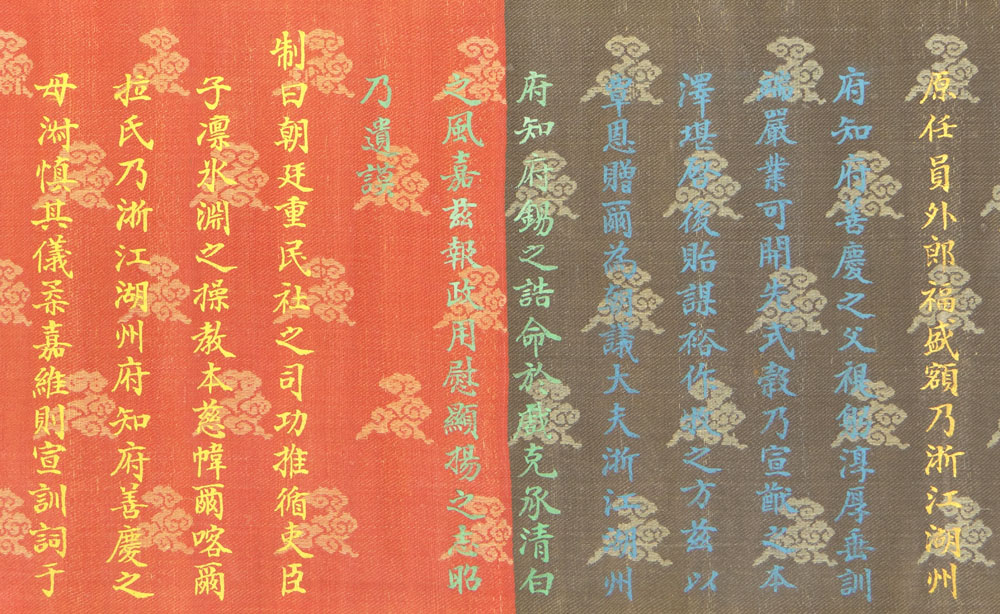 原任員外郎福盛額乃浙江湖州
府知府善慶之父褆躬淳厚垂訓
端嚴業可開先式穀乃宣猷之本
澤堪啓後貽謀裕作牧之方茲以
覃恩贈爾為朝議大夫浙江湖州
府知府錫之誥命於戲克承清白
之風嘉茲報政用慰顯揚之志昭
乃遺謨
制曰朝廷重民社之司功推循吏臣
子凛氷淵之操教本慈幃爾喀爾
拉氏乃浙江湖州府知府善慶之
母淑慎其儀柔嘉維則宣訓詞于